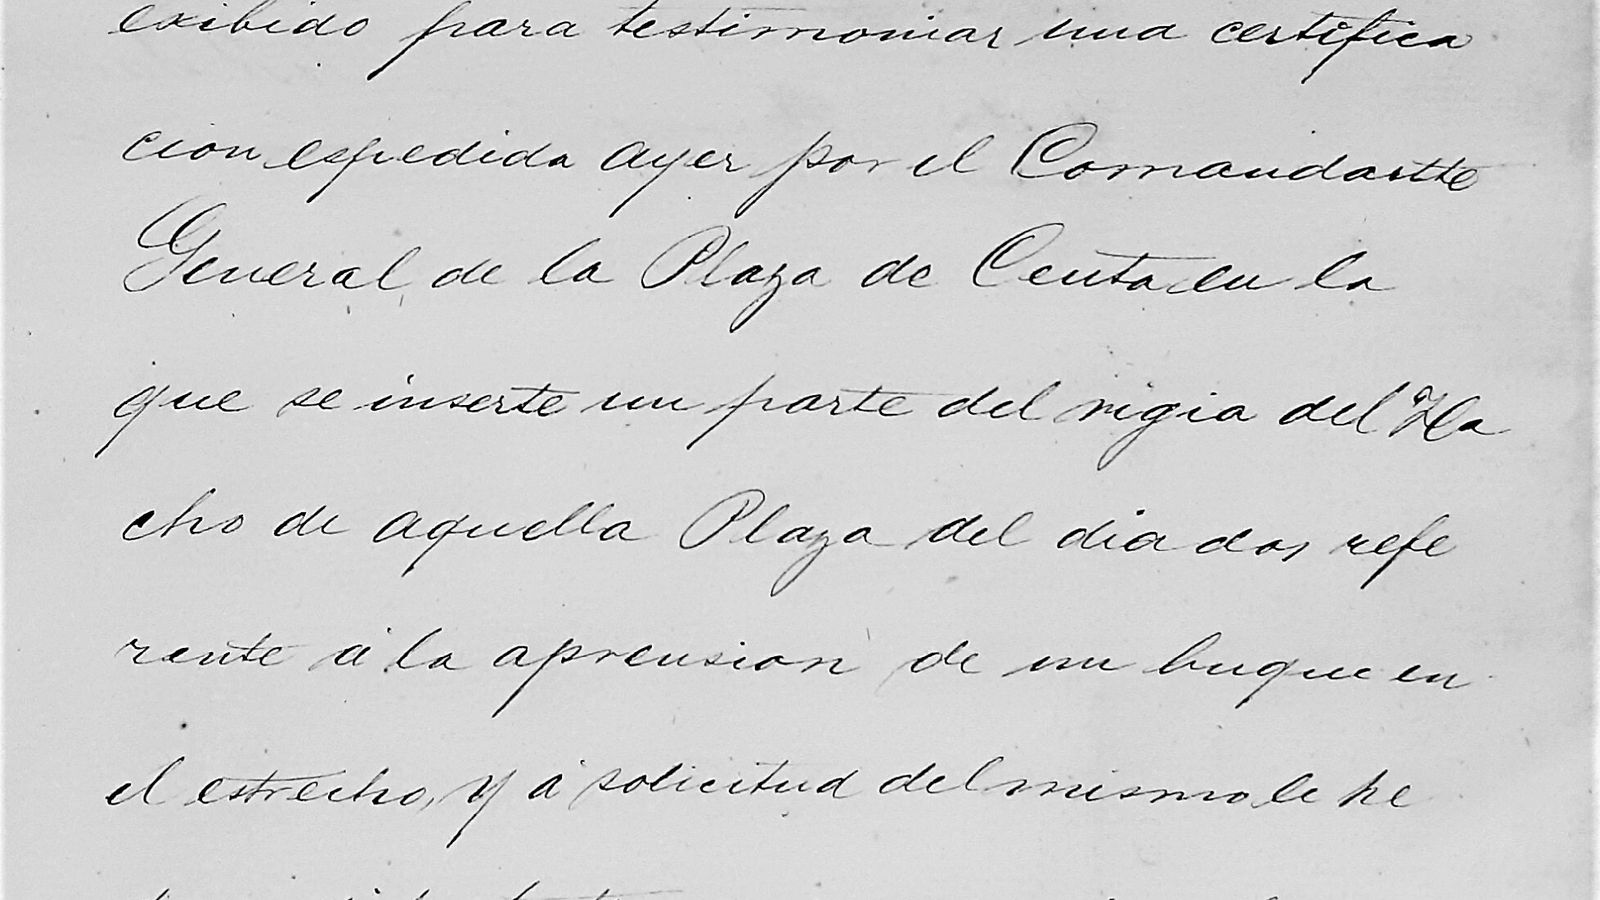 exibido para testimoniar una certifica
cion espedida ayer por el Comandantte
General de la Plaza de Ceuta en la
que se inserte un parte del vigia del Ha
cho de aquella Plaza del dia dos refe
rente á la aprension de un buque en
el estrecho, y á solicitud del mismo le he